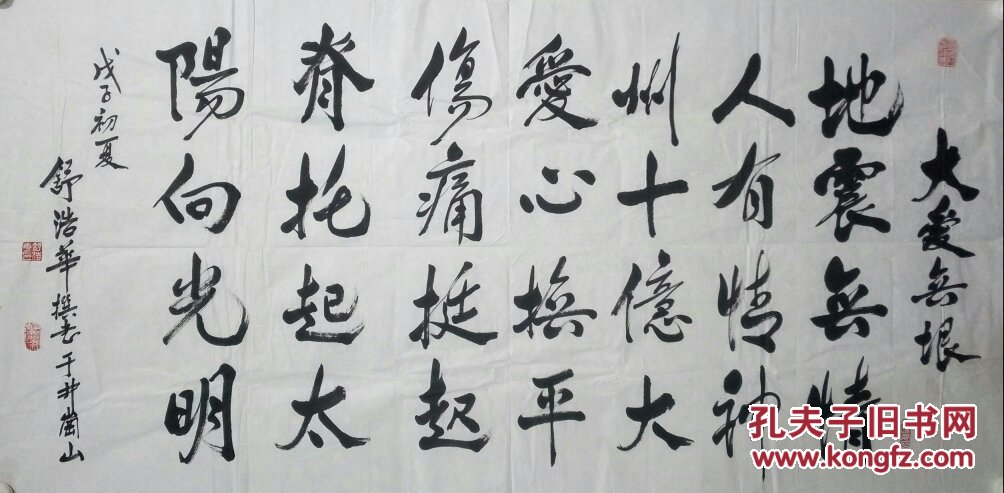 大愛無垠
地震無情
人有情神
州十億大
愛心撫平
傷痛挺起
脊托起太
陽向光明
戊子初夏
舒浩華撰書于井崗山
孔夫子旧书网
www.kongfz.com